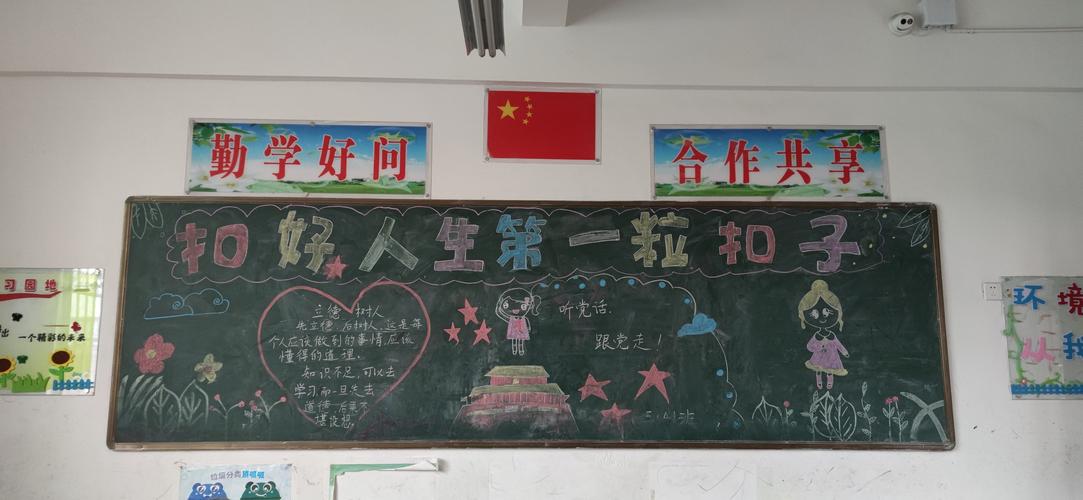 勤学好问
合作共享
扣好人生第一粒扣子
习园地
一个精彩的未来
立德 树人
先立德,后树人,这是每
个人应该做到的事情,应该
懂得的道理。
知识不足,可以去
学习,而一旦失去
道德,后果不
堪设想。
听党话.
跟党走!
环境
从我
垃圾分类